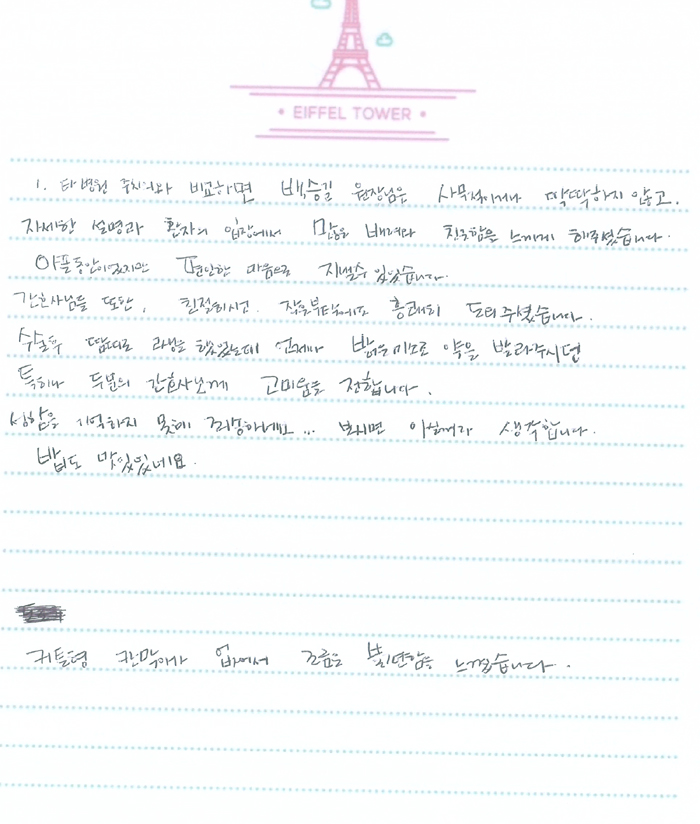 • EIFFEL TOWER •
1. 타병원 주치의와 비교하면 백승길 원장님은 사무적이거나 딱딱하지 않고.
자세한 설명과 환자의 입장에서 많은 배려와 친근함을 느끼게 해주셨습니다.
이틀동안이었지만 편안한 마음으로 지낼수 있었습니다.
간호사님들 또한, 친절하시고. 작은부탁에도 흔쾌히 도와주셨습니다.
수술후 땀띠로 고생을 했었는데 언제나 밝은미소로 약을 발라주시던
특히나 두분의 간호사님께 고마움을 전합니다.
성함을 기억하지 못해 죄송하네요... 보시면 아실꺼라 생각합니다.
밥도 맛있었네요.
커튼형 칸막이가 없어서 조금은 불편함을 느꼈습니다.